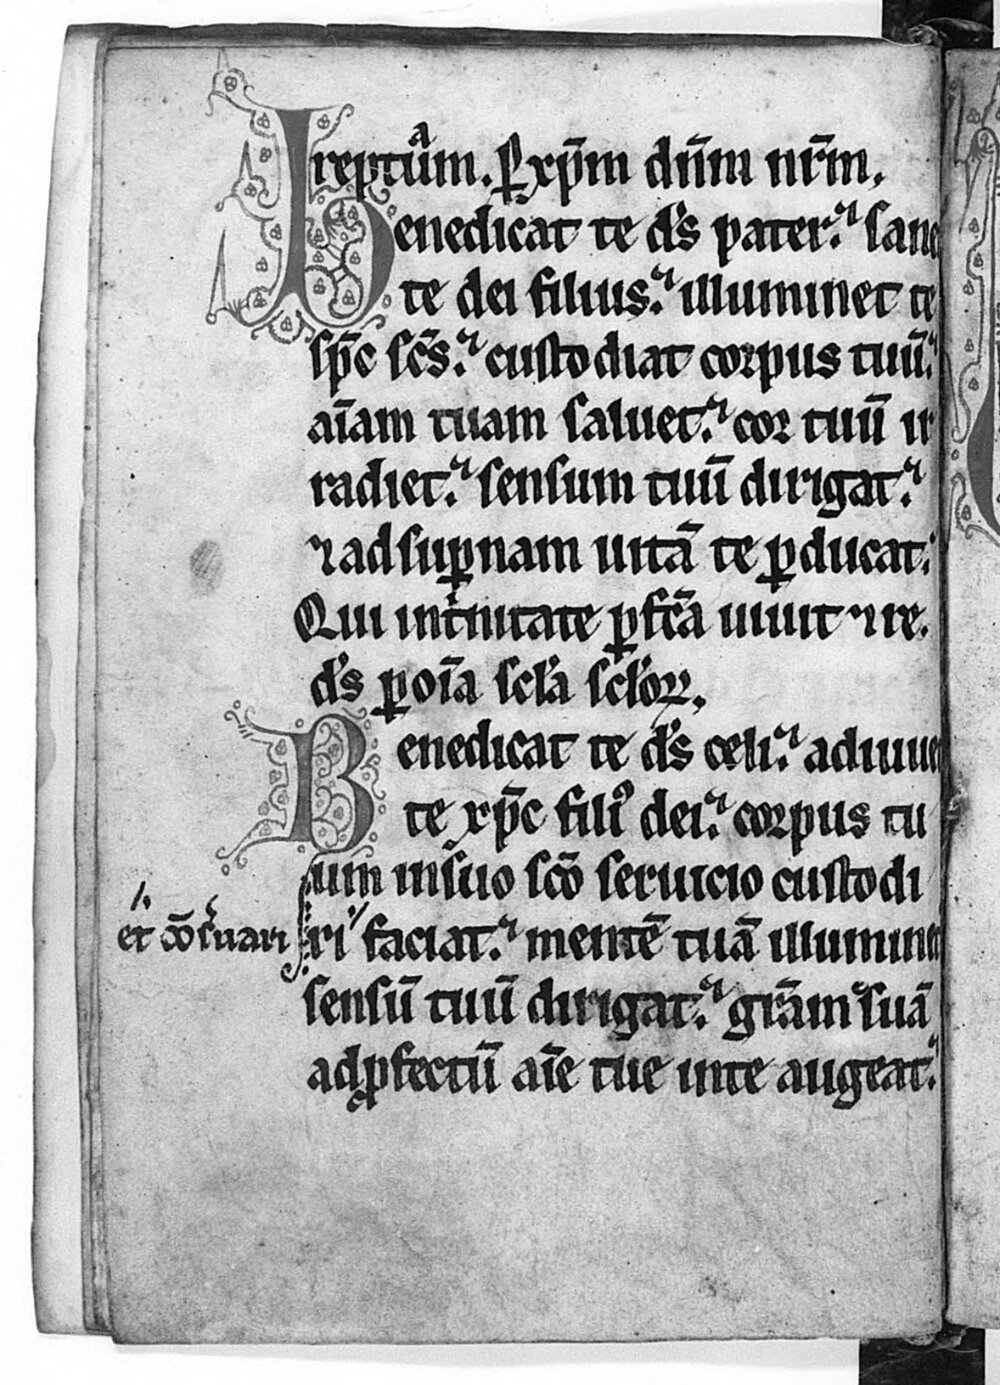 reptuᷓm. ꝑ xp̄m dn̄m nr̄m.
Benedicat te ds̄ pater. sane
te dei filius. illuminet te
sp̄c sc̄s. custodiat corpus tuū.
aīam tuam saluet. cor tuū ir
radiet. sensum tuū dirigat.
⁊ ad suꝑnam uitā te ꝑducat.
Qui in t̄nitate ꝑfc̄a uiuit ⁊ re.
ds̄ ꝑ oīa scl̄a scl̄oꝝ.
Benedicat te ds̄ celi. adiuuet
te xp̄c filiꝰ dei. corpus tu
um in suo sc̄o seruicio custodi
et cōseruari
ri faciat. mentē tuā illuminet
sensū tuū dirigat. gr̄am suā
ad ꝓfectū aīe tue in te augeat.